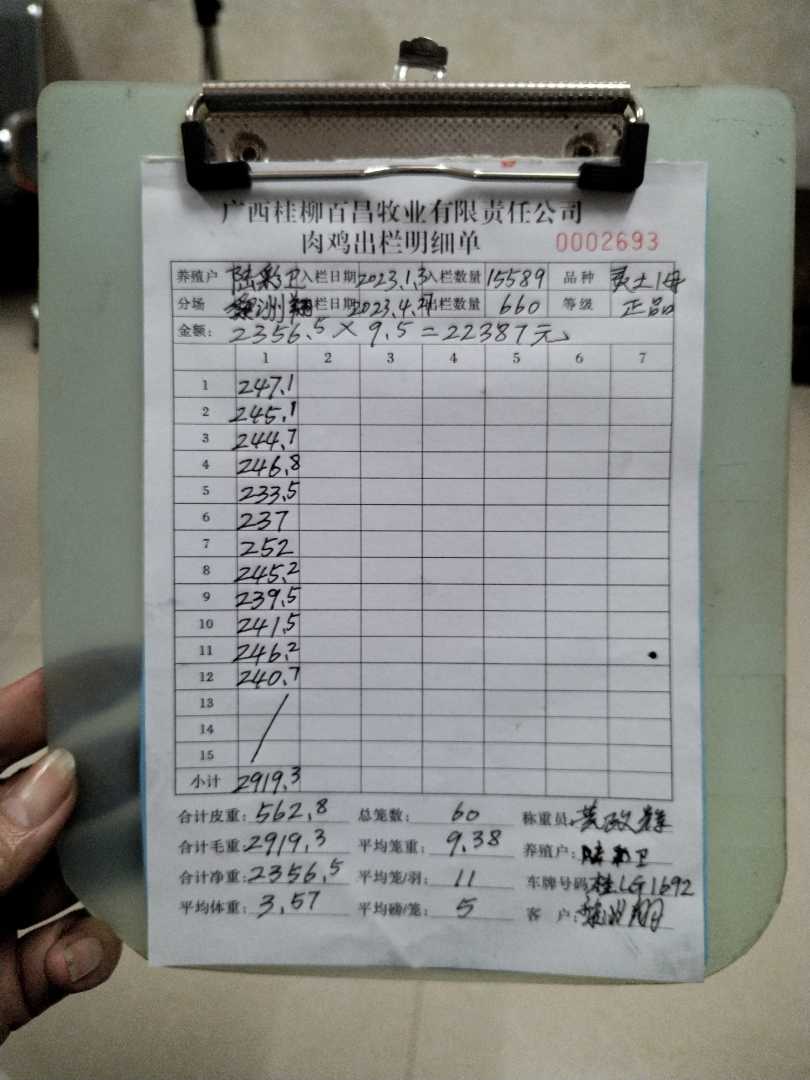 广西桂柳百昌牧业有限责任公司
肉鸡出栏明细单 0002693
养殖户 陆彩卫 入栏日期 2023.1.3 入栏数量 15589 品种 灵土1号
分场 洲翔 栏日期 2023.4.27 出栏数量 660 等级 正品
金额: 2356.5×9.5=22387元
1 2 3 4 5 6 7
1 247.1
2 245.1
3 244.7
4 246.8
5 233.5
6 237
7 252
8 245.2
9 239.5
10 241.5
11 246.2
12 240.7
13
14
15
小计 2919.3
合计皮重: 562.8 总笼数: 60 称重员:
合计毛重: 2919.3 平均笼重: 9.38 养殖户: 陆彩卫
合计净重: 2356.5 平均笼/羽: 11 车牌号码 桂LG1692
平均体重: 3.57 平均磅/笼: 5 客 户: